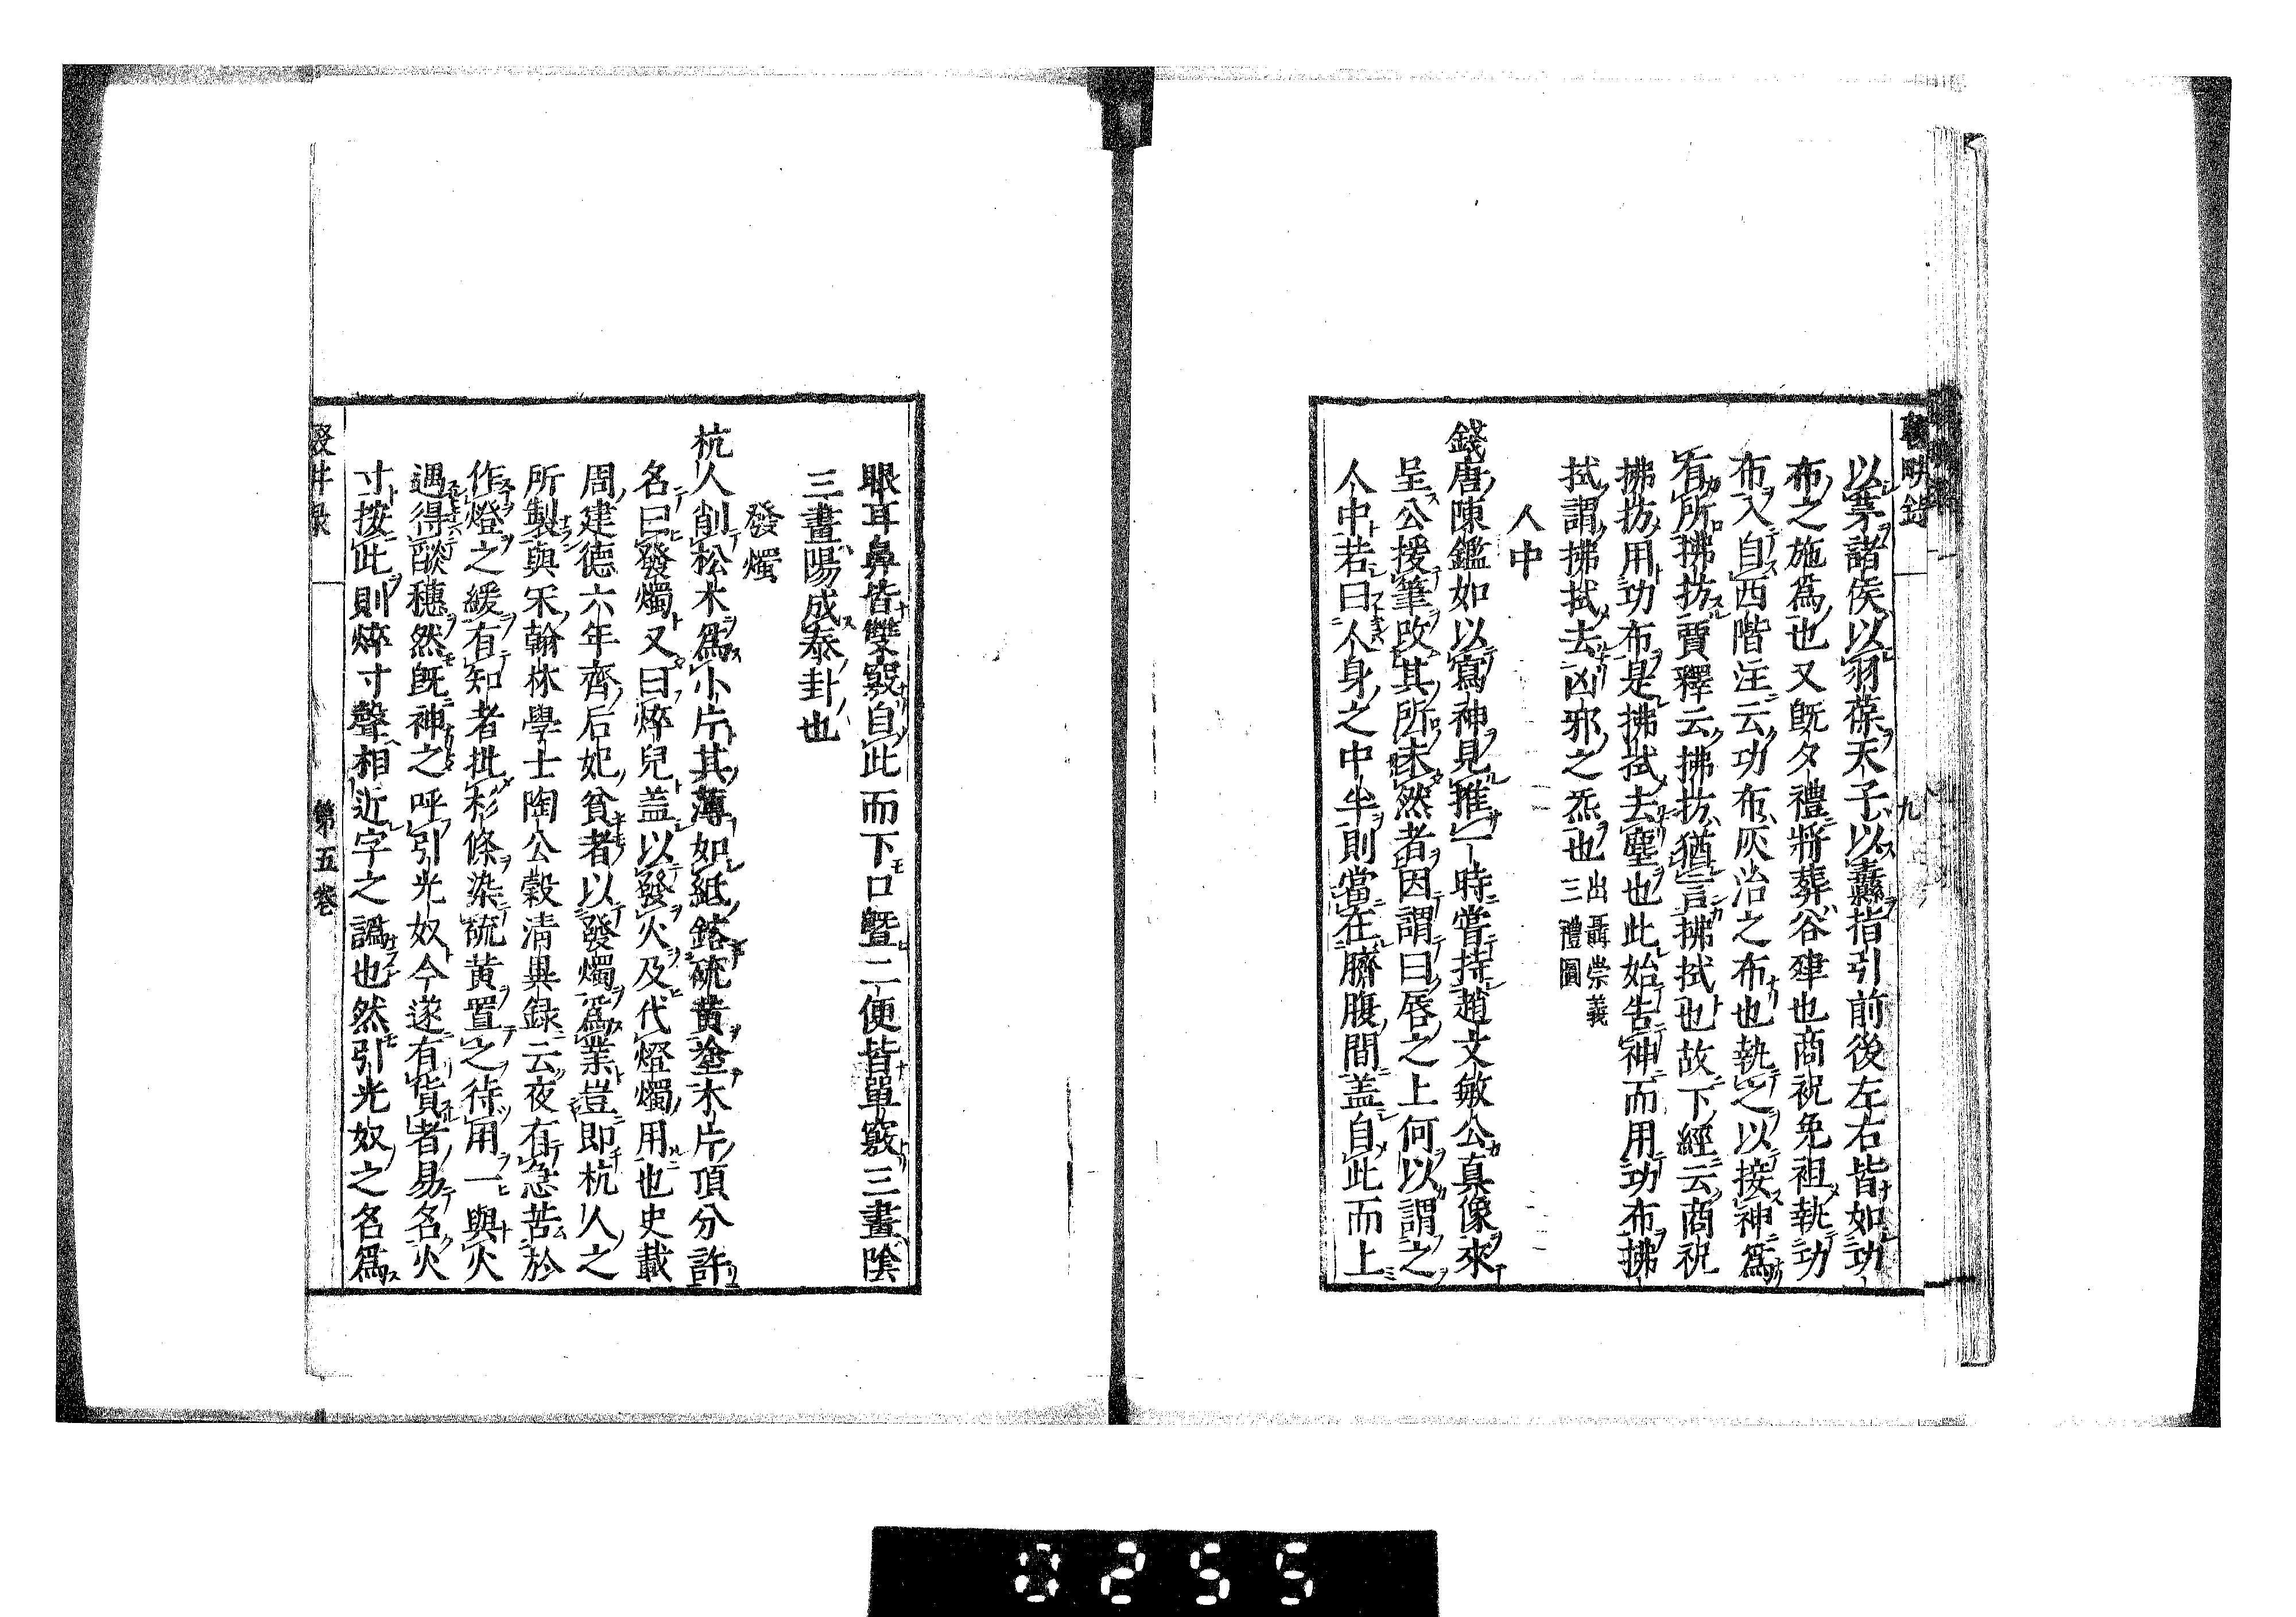 以茅諸侯以羽葆天子以纛指引前後左右皆如功
布之施爲也又旣夕禮將葬谷肂也商祝免袒執功
布入自西階注云功布灰治之布也執之以接神爲
有所拂㧍賈釋云拂㧍猶言拂拭也故下經云商祝
拂㧍用功布是拂拭去塵也此始告神而用功布拂
拭謂拂拭去凶邪之炁也出聶崇義三禮圖
人中
錢唐陳鑑如以寫神見推一時嘗持趙文敏公真像來
呈公援筆改其所未然者因謂曰唇之上何以謂之
人中若曰人身之中半則當在臍腹間盖自此而上
眼耳鼻皆雙竅自此而下口暨二便皆單竅三畫陰
三畫陽成泰卦也
發燭
杭人削松木爲小片其薄如紙鎔硫黄塗木片頂分許
名曰發燭又曰焠兒盖以發火及代燈燭用也史載
周建德六年齊后妃貧者以發燭爲業豈即杭人之
所製與宋翰林學士陶公穀清異録云夜有急苦於
作燈之緩有知者批杉條染硫黄置之待用一與火
遇得燄穗然旣神之呼引光奴今遂有貨者易名火
寸按此則焠寸聲相近字之譌也然引光奴之名爲
第五卷
九
0255